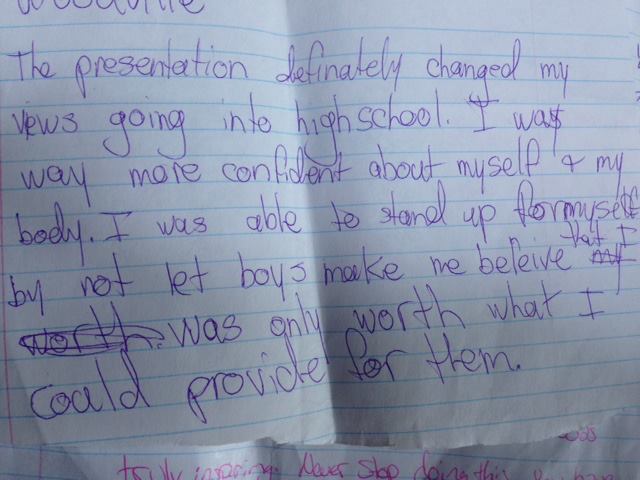 The presentation definately changed my
views going into highschool. I was
way more confident about myself & my
body. I was able to stand up for myself
by not let boys make me beleive that I
was only worth what I
could provide for them.
truly inspiring. Never stop doing this.